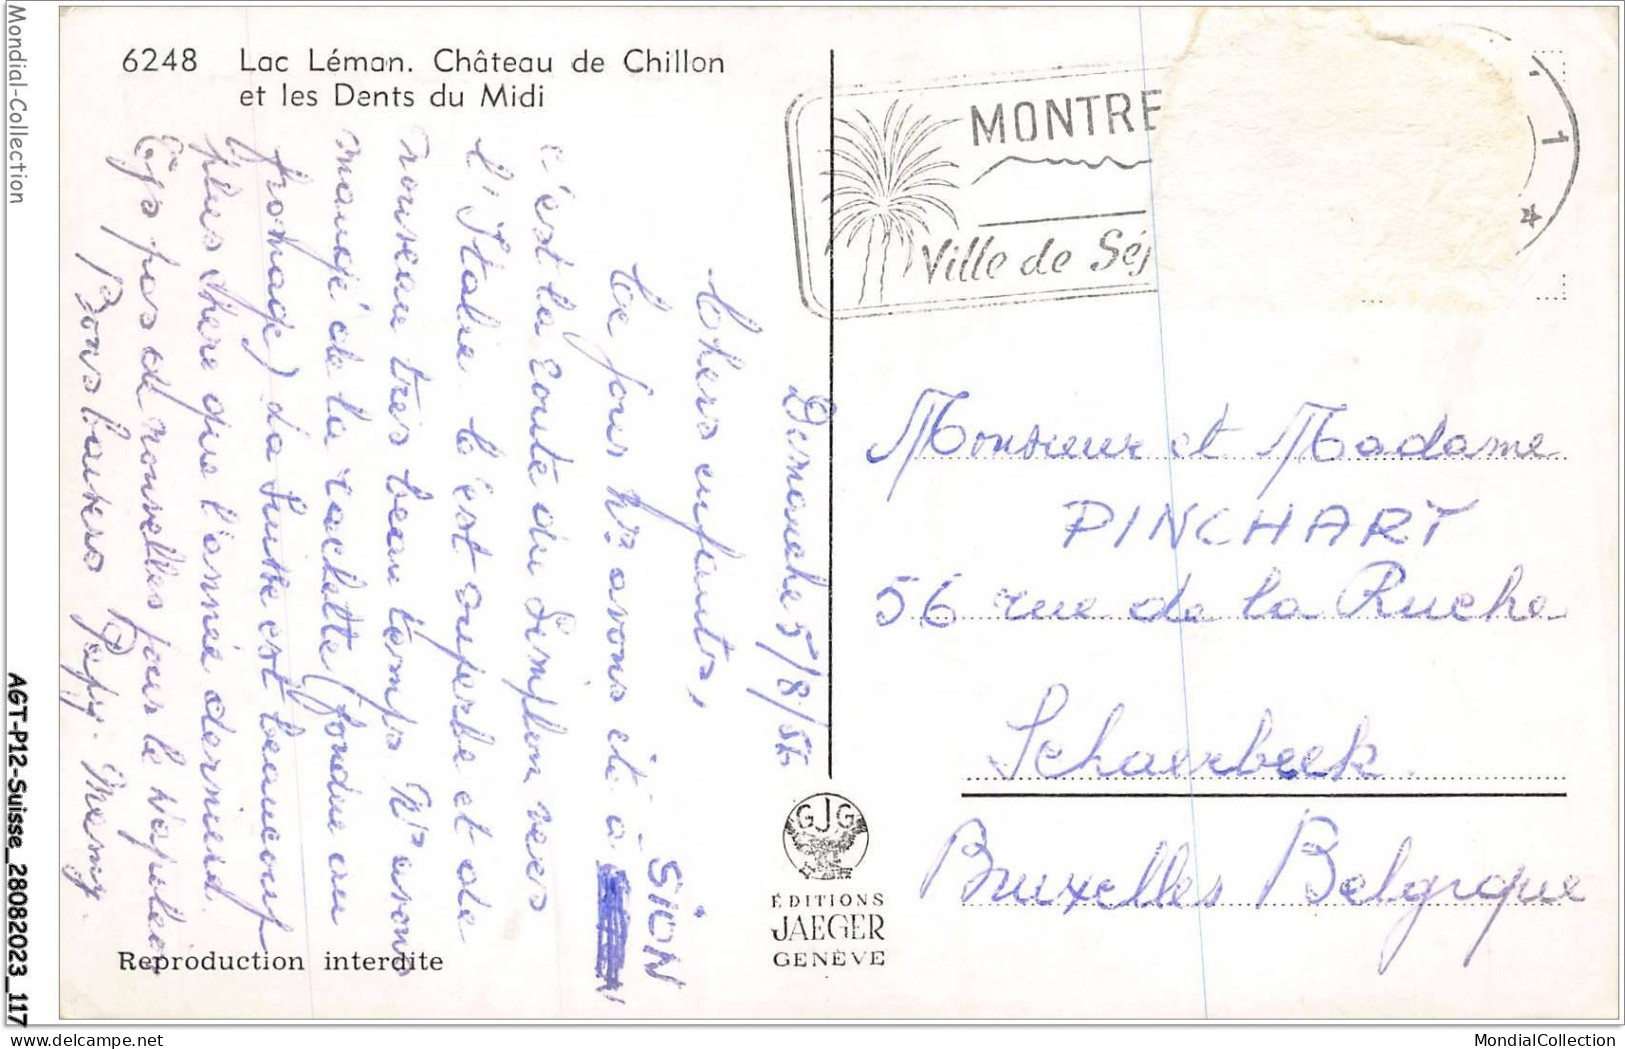 6248 Lac Léman. Château de Chillon
et les Dents du Midi
Dimanche 5/8/56
Chers enfants,
Ce jour Ns avons été à SION
c'est la route du Simplon vers
l'Italie. C'est superbe et de
nouveau très beau temps. Ns avons
mangé de la raclette (fondue au
fromage) la Suisse est beaucoup
plus chère que l'année dernière.
pas de nouvelles pour le
Bons baisers Papy. Mamy.
Reproduction interdite
MONTRE
Ville de Séj
1
GJG
ÉDITIONS
JAEGER
GENÈVE
Monsieur et Madame
PINCHART
56 rue de la Ruche
Schaerbeek.
Bruxelles Belgique
Mondial-Collection
AGT-P12-Suisse_28082023_117
delcampe.net
MondialCollection